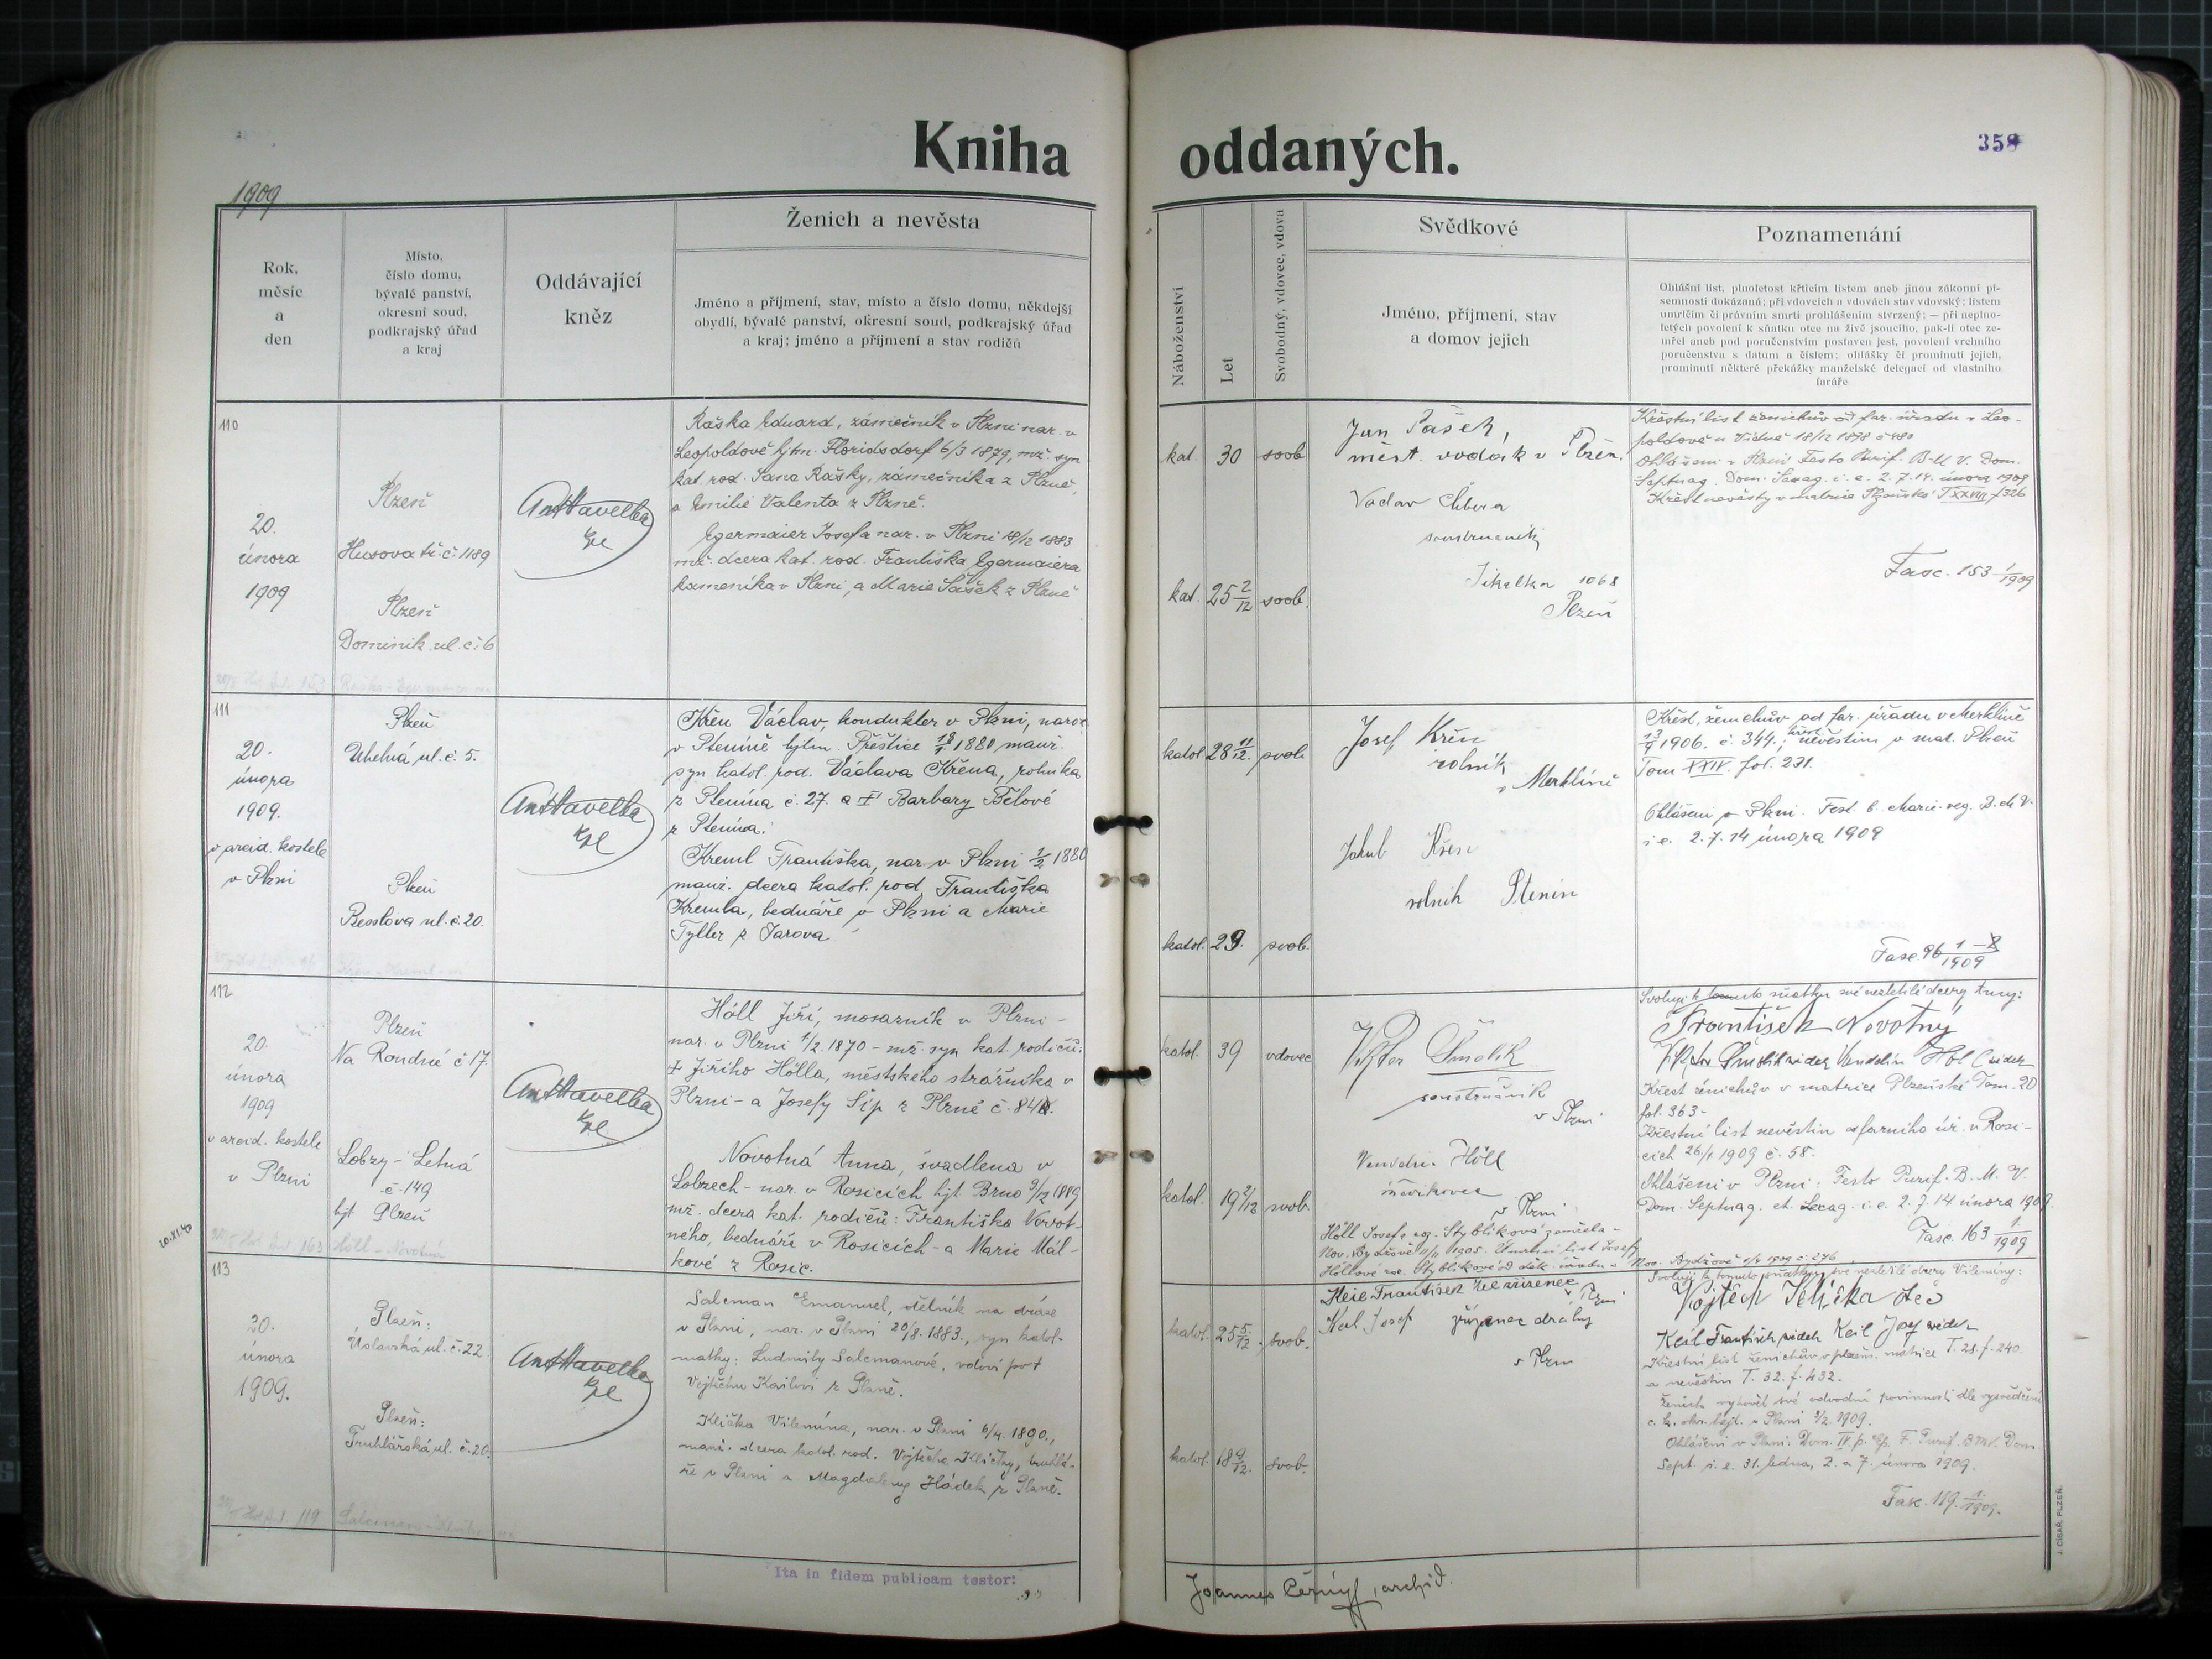 Kniha oddaných.
358
1909
Rok,
měsíc
a
den
Místo,
číslo domu,
bývalé panství,
okresní soud,
podkrajský úřad
a kraj
Oddávající
kněz
Ženich a nevěsta
Jméno a příjmení, stav, místo a číslo domu, někdejší
obydlí, bývalé panství, okresní soud, podkrajský úřad
a kraj; jméno a příjmení a stav rodičů
Náboženství
Let
Svobodný, vdovec, vdova
Svědkové
Jméno, příjmení, stav
a domov jejich
Poznamenání
Ohlášní list, plnoletost křticím listem aneb jinou zákonní pí-
semností dokázaná; při vdovcích a vdovách stav vdovský; listem
umrlčím či právním smrti prohlášením stvrzený; — při neplno-
letých povolení k sňatku otce na živě jsoucího, pak-li otec ze-
mřel aneb pod poručenstvím postaven jest, povolení vrchního
poručenstva s datum a číslem; ohlášky či prominutí jejich,
prominutí některé překážky manželské delegací od vlastního
faráře
110
20.
února
1909
Plzeň
Husova tř. č. 1189
Plzeň
Dominik. ul. č. 6
Ant Havelka
Raška Eduard, zámečník v Plzni nar. v
Leopoldově hjtm. Floridsdorf 6/3 1879, mž. syn
kat. rod. Jana Rašky, zámečníka z Plzně,
a Emilie Valenta z Plzně.
Egermaier Josefa nar. v Plzni 18/12 1883
mž. dcera kat. rod. Františka Egermaiera
kameníka v Plzni, a Marie Sašek z Plzně
kat. 30 svob
kat. 25 2/12 svob.
Jan Pašek,
měst. vodák v Plzen.
Václav
1068
Plzeň
Křestní list ženichův od far. úřadu v Leo-
poldově u Vídně 18/12 1898 č 480
Ohlášeni v Plzni Festo Purif. B. M. V. Dom.
Septuag. Dom. Sexag. i. e. 2. 7. 14. února 1909
Křest nevěsty v matrice Plzeňské T XXVII f 326
Fasc. 153 1/1909
111
20.
února
1909.
v arcid. kostele
v Plzni
Plzeň
Uhelná ul. č. 5.
Plzeň
Resslova ul. č. 20.
Ant Havelka
Křen Václav, kondukter v Plzni, naroz
v Pteníně hjtm. Přeštice 18/3 1880 manž.
syn katol. rod. Václava Křena, rolníka
z Ptenína č. 27. a † Barbory Bělové
z Ptenína.
Kreml Františka, nar. v Plzni 1/2 1880
manž. dcera katol. rod. Františka
Kremla, bednáře v Plzni a Marie
Tyller z Jarova
katol. 28 11/12. svob
katol. 29. svob.
Josef Křen
rolník
v Merklíně
Jakub Křen
rolník Ptenín
Křest. ženichův od far. úřadu v Merklíně
13/9 1906. č. 344.; křest nevěstin v mat. Plzeň
Tom XXIV. fol. 231.
Ohlášeni v Plzni. Fest. b. Marie. reg. B. M V.
i. e. 2. 7. 14 února 1909
Fasc. 96 1/1909
112
20.
února
1909
v arcid. kostele
v Plzni
20.XI.40
Plzeň
Na Roudné č 17.
Lobzy - Letná
č. 149
hjt Plzeň
Ant Havelka
Höll Jiří, mosazník v Plzni -
nar. v Plzni 1/2. 1870 - mž. syn kat. rodičů:
† Jiřího Hölla, městského strážníka v
Plzni - a Josefy Šíp z Plzně č. 84.
Novotná Anna, švadlena v
Lobzech - nar. v Rosicích hjt. Brno 9/12 1889
mž. dcera kat. rodičů: Františka Novot-
ného, bednáři v Rosicích - a Marie Mál-
kové z Rosic.
katol. 39 vdovec
katol. 19 2/12 svob.
Viktor Šmolík
soustružník
v Plzni
Höll
v Plzni
Svoluji k tomuto sňatku své nezletilé dcery Anny:
František Novotný
Křest ženichův v matrice Plzeňské Tom. 20
fol. 363 -
Křestní list nevěstin od farního úř. v Rosi-
cích 26/1 1909 č. 58.
Ohlášeni v Plzni: Festo Purif. B. M. V.
Dom. Septuag. et. Sexag. i. e. 2. 7. 14 února 1909
Fasc. 163 1/1909
113
20.
února
1909.
Plzeň:
Úslavská ul. č. 22
Plzeň:
Truhlářská ul. č. 20.
Ant Havelka
Salcman Emanuel, dělník na dráze
v Plzni, nar. v Plzni 20/8. 1883., syn katol.
matky: Ludmily Salcmanové, vdovi po †
Vojtěchu Kailovi z Plzně.
Klička Vilemína, nar. v Plzni 6/4. 1890.,
manž. dcera katol. rod. Vojtěcha Kličky, truhlá-
ře v Plzni a Magdaleny Hádek z Plzně.
katol. 25 5/12 svob.
katol. 18 9/12. svob.
Keil František
Keil Josef zřízenec dráhy
v Plzni
Svoluji k tomuto sňatku své nezletilé dcery Vilemíny:
Vojtěch Klička otec
Keil František svědek Keil Josef svědek
Křestní list ženichův v plzeň. matrice T. 28. f. 240.
a nevěstin T. 32. f. 432.
Ženich vyhověl své odvodní povinnosti dle vysvědčení
c. k. okr. hejt. v Plzni 3/2. 1909.
Ohlášeni v Plzni: Dom. IV. p. Ep. F. Purif. B.M.V. Dom.
Sept. i. e. 31. ledna, 2. a 7. února 1909.
Fasc. 119. 1/1909.
Ita in fidem publicam testor:
Joannes Černý, archid.
J. CÍSAŘ, PLZEŇ.